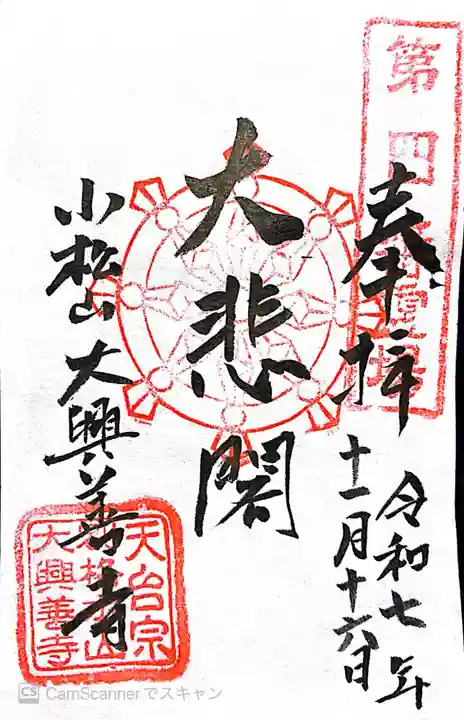 奉拝
令和七年
十一月十六日
大悲閣
小松山大興善寺
天台宗
小松山
大興善寺
CS CamScannerでスキャン